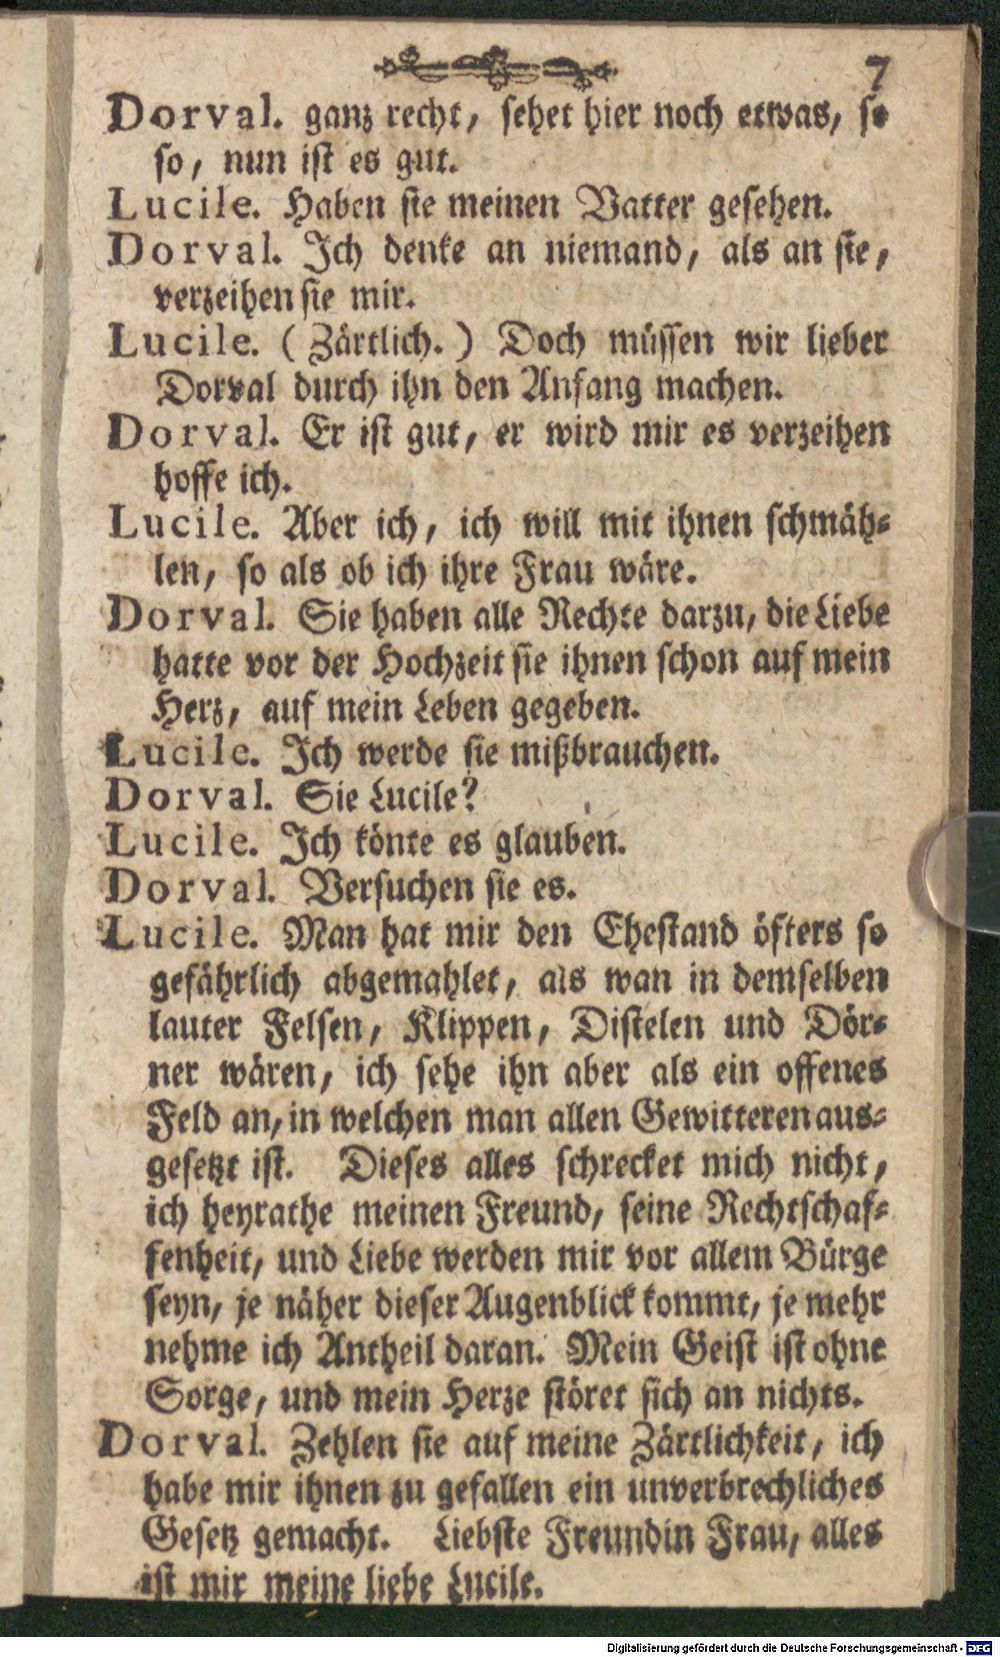 7
Dorval. ganz recht, sehet hier noch etwas, so
so, nun ist es gut.
Lucile. Haben sie meinen Vatter gesehen.
Dorval. Ich denke an niemand, als an sie,
verzeihen sie mir.
Lucile. (Zärtlich.) Doch müssen wir lieber
Dorval durch ihn den Anfang machen.
Dorval. Er ist gut, er wird mir es verzeihen
hoffe ich.
Lucile. Aber ich, ich will mit ihnen schmäh-
len, so als ob ich ihre Frau wäre.
Dorval. Sie haben alle Rechte darzu, die Liebe
hatte vor der Hochzeit sie ihnen schon auf mein
Herz, auf mein Leben gegeben.
Lucile. Ich werde sie mißbrauchen.
Dorval. Sie Lucile?
Lucile. Ich könte es glauben.
Dorval. Versuchen sie es.
Lucile. Man hat mir den Ehestand öfters so
gefährlich abgemahlet, als wan in demselben
lauter Felsen, Klippen, Distelen und Dör-
ner wären, ich sehe ihn aber als ein offenes
Feld an, in welchen man allen Gewitteren aus-
gesetzt ist. Dieses alles schrecket mich nicht,
ich heyrathe meinen Freund, seine Rechtschaf-
fenheit, und Liebe werden mir vor allem Bürge
seyn, je näher dieser Augenblick kommt, je mehr
nehme ich Antheil daran. Mein Geist ist ohne
Sorge, und mein Herze störet sich an nichts.
Dorval. Zehlen sie auf meine Zärtlichkeit, ich
habe mir ihnen zu gefallen ein unverbrechliches
Gesetz gemacht. Liebste Freundin Frau, alles
ist mir meine liebe Lucile.
Digitalisierung gefördert durch die Deutsche Forschungsgemeinschaft - DFG